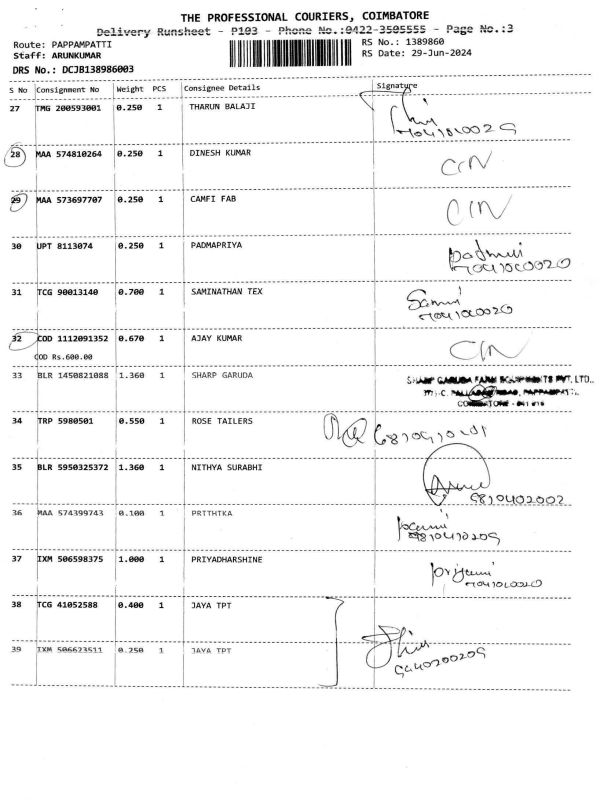 THE PROFESSIONAL COURIERS, COIMBATORE
Delivery Runsheet - P103 - Phone No.:0422-3505555 - Page No.:3
Route: PAPPAMPATTI RS No.: 1389860
Staff: ARUNKUMAR RS Date: 29-Jun-2024
DRS No.: DCJB138986003
S No Consignment No Weight PCS Consignee Details Signature
27 TMG 200593001 0.250 1 THARUN BALAJI
28 MAA 574810264 0.250 1 DINESH KUMAR CIN
29 MAA 573697707 0.250 1 CAMFI FAB CIN
30 UPT 8113074 0.250 1 PADMAPRIYA
31 TCG 90013140 0.700 1 SAMINATHAN TEX
32 COD 1112091352 0.670 1 AJAY KUMAR CIN
COD Rs.600.00
33 BLR 1450821088 1.360 1 SHARP GARUDA SHARP GARUDA FARM EQUIPMENTS PVT. LTD.,
34 TRP 5980501 0.550 1 ROSE TAILERS
35 BLR 5950325372 1.360 1 NITHYA SURABHI
36 MAA 574399743 0.100 1 PRITHIKA
37 IXM 506598375 1.000 1 PRIYADHARSHINE
38 TCG 41052588 0.400 1 JAYA TPT
39 IXM 506623511 0.250 1 JAYA TPT